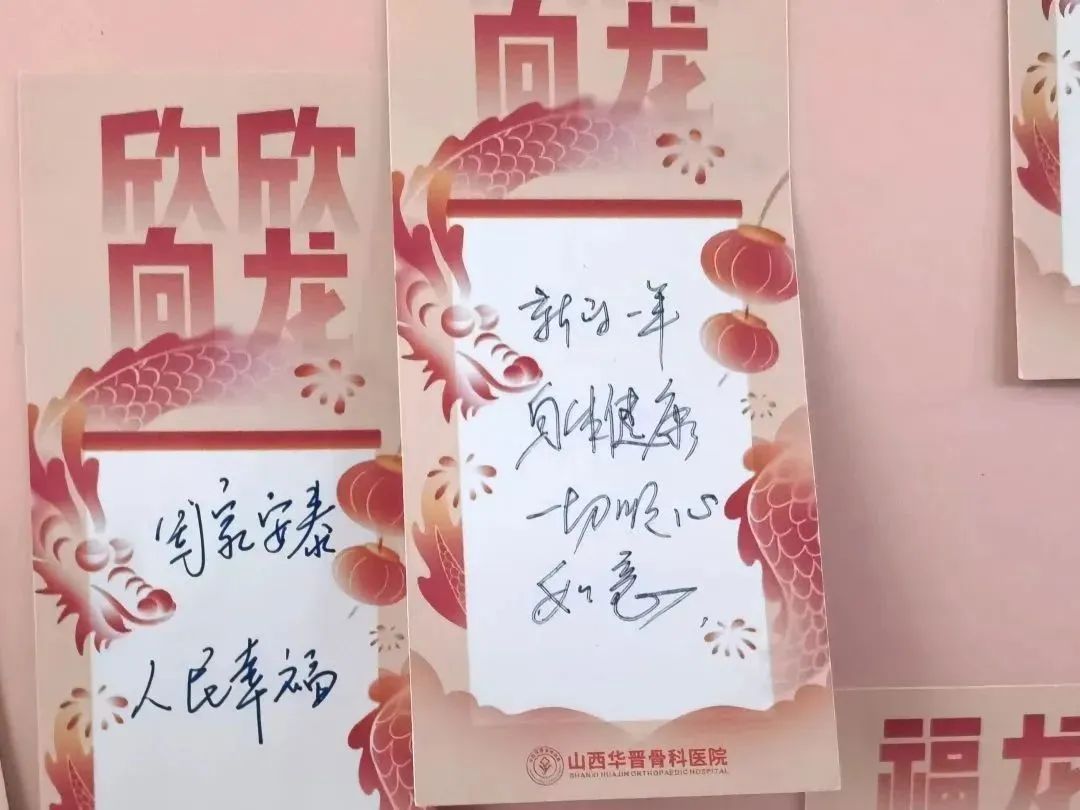 欣欣
向龙
国家安泰
人民幸福
向龙
新的一年
身体健康
一切顺心
如意
山西华晋骨科医院
SHANXI HUAJIN ORTHOPAEDIC HOSPITAL
福龙